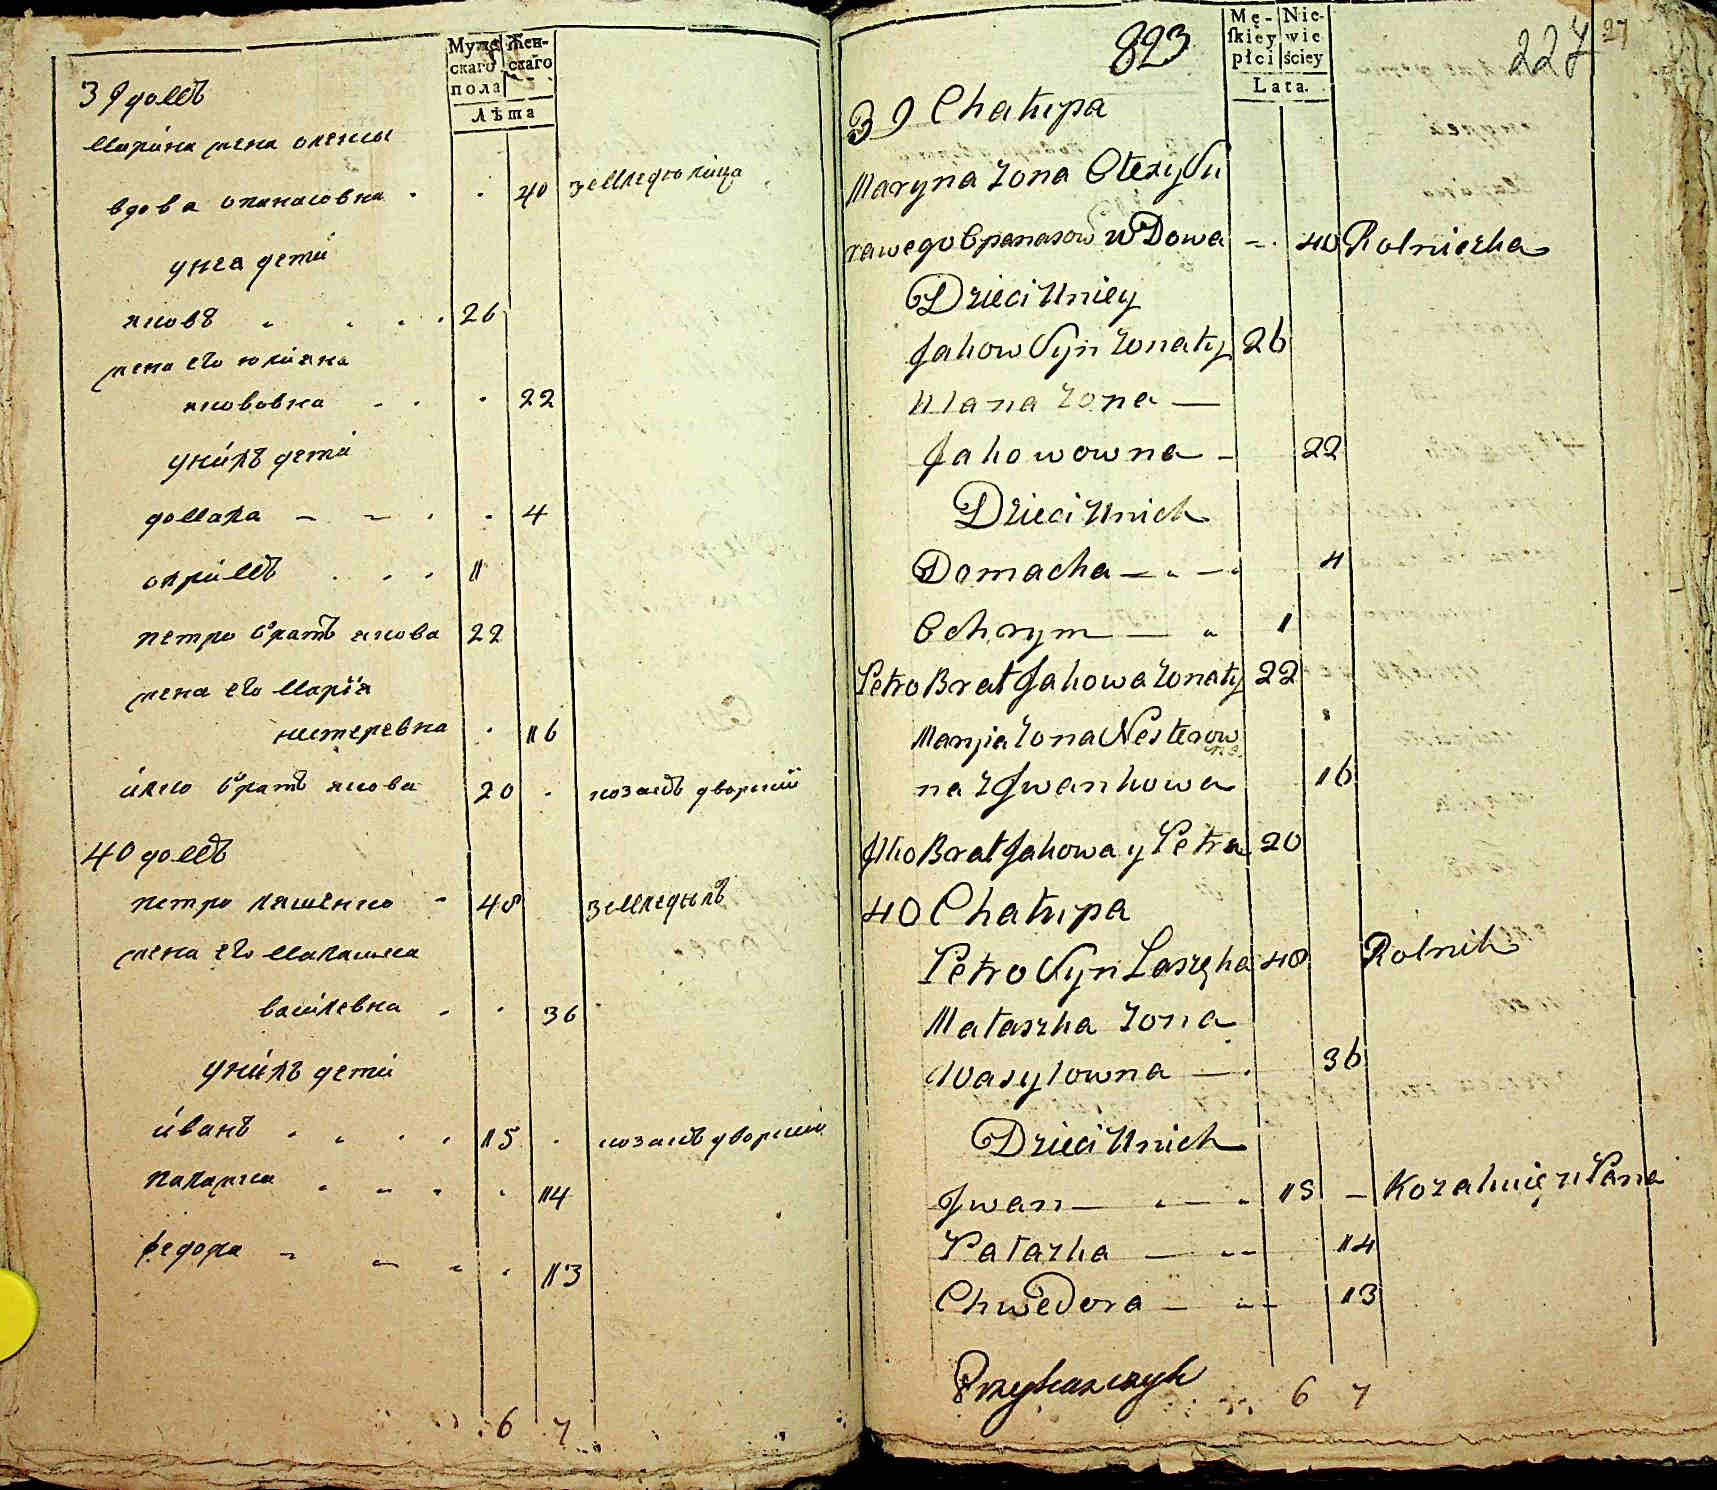 Мужескаго пола
Женскаго
Лѣта
39 домъ
Марина жена олексы
вдова опанасовна 40 земледюлица
унея дети
яковъ 26
жена его юлияна
якововна 22
унихъ дети
домаха 4
охримъ 1
петро братъ якова 22
жена его Мария
нестеревна 16
илко братъ якова 20 козакъ дворний
40 домъ
петро ляшенко 48 земледелъ
жена его Малашка
василевна 36
унихъ дети
иванъ 15 козакъ дворний
палажка 14
федора 13
6 7
823
227
27
Męſkiey płci
Niewieściey
Lata.
39 Chałupa
Maryna Zona Olexy Su
rawego Opanasow wDowa 40 Rolniczka
Dzieci Uniey
Jakow Syn Zonaty 26
Ulana Zona
Jakowowna 22
Dzieci Unich
Domacha 4
Ochrym 1
Petro Brat Jakowa Zonaty 22
Maryia Zona Nesterow
na z Jwankowa 16
Jlko Brat Jakowa y Petra 20
40 Chałupa
Petro Syn Laszęka 48 Rolnik
Małaszka Zona
Wasylowna 36
Dzieci Unich
Jwan 15 Kozakuię u Pana
Pałazka 14
Chwedora 13
6 7